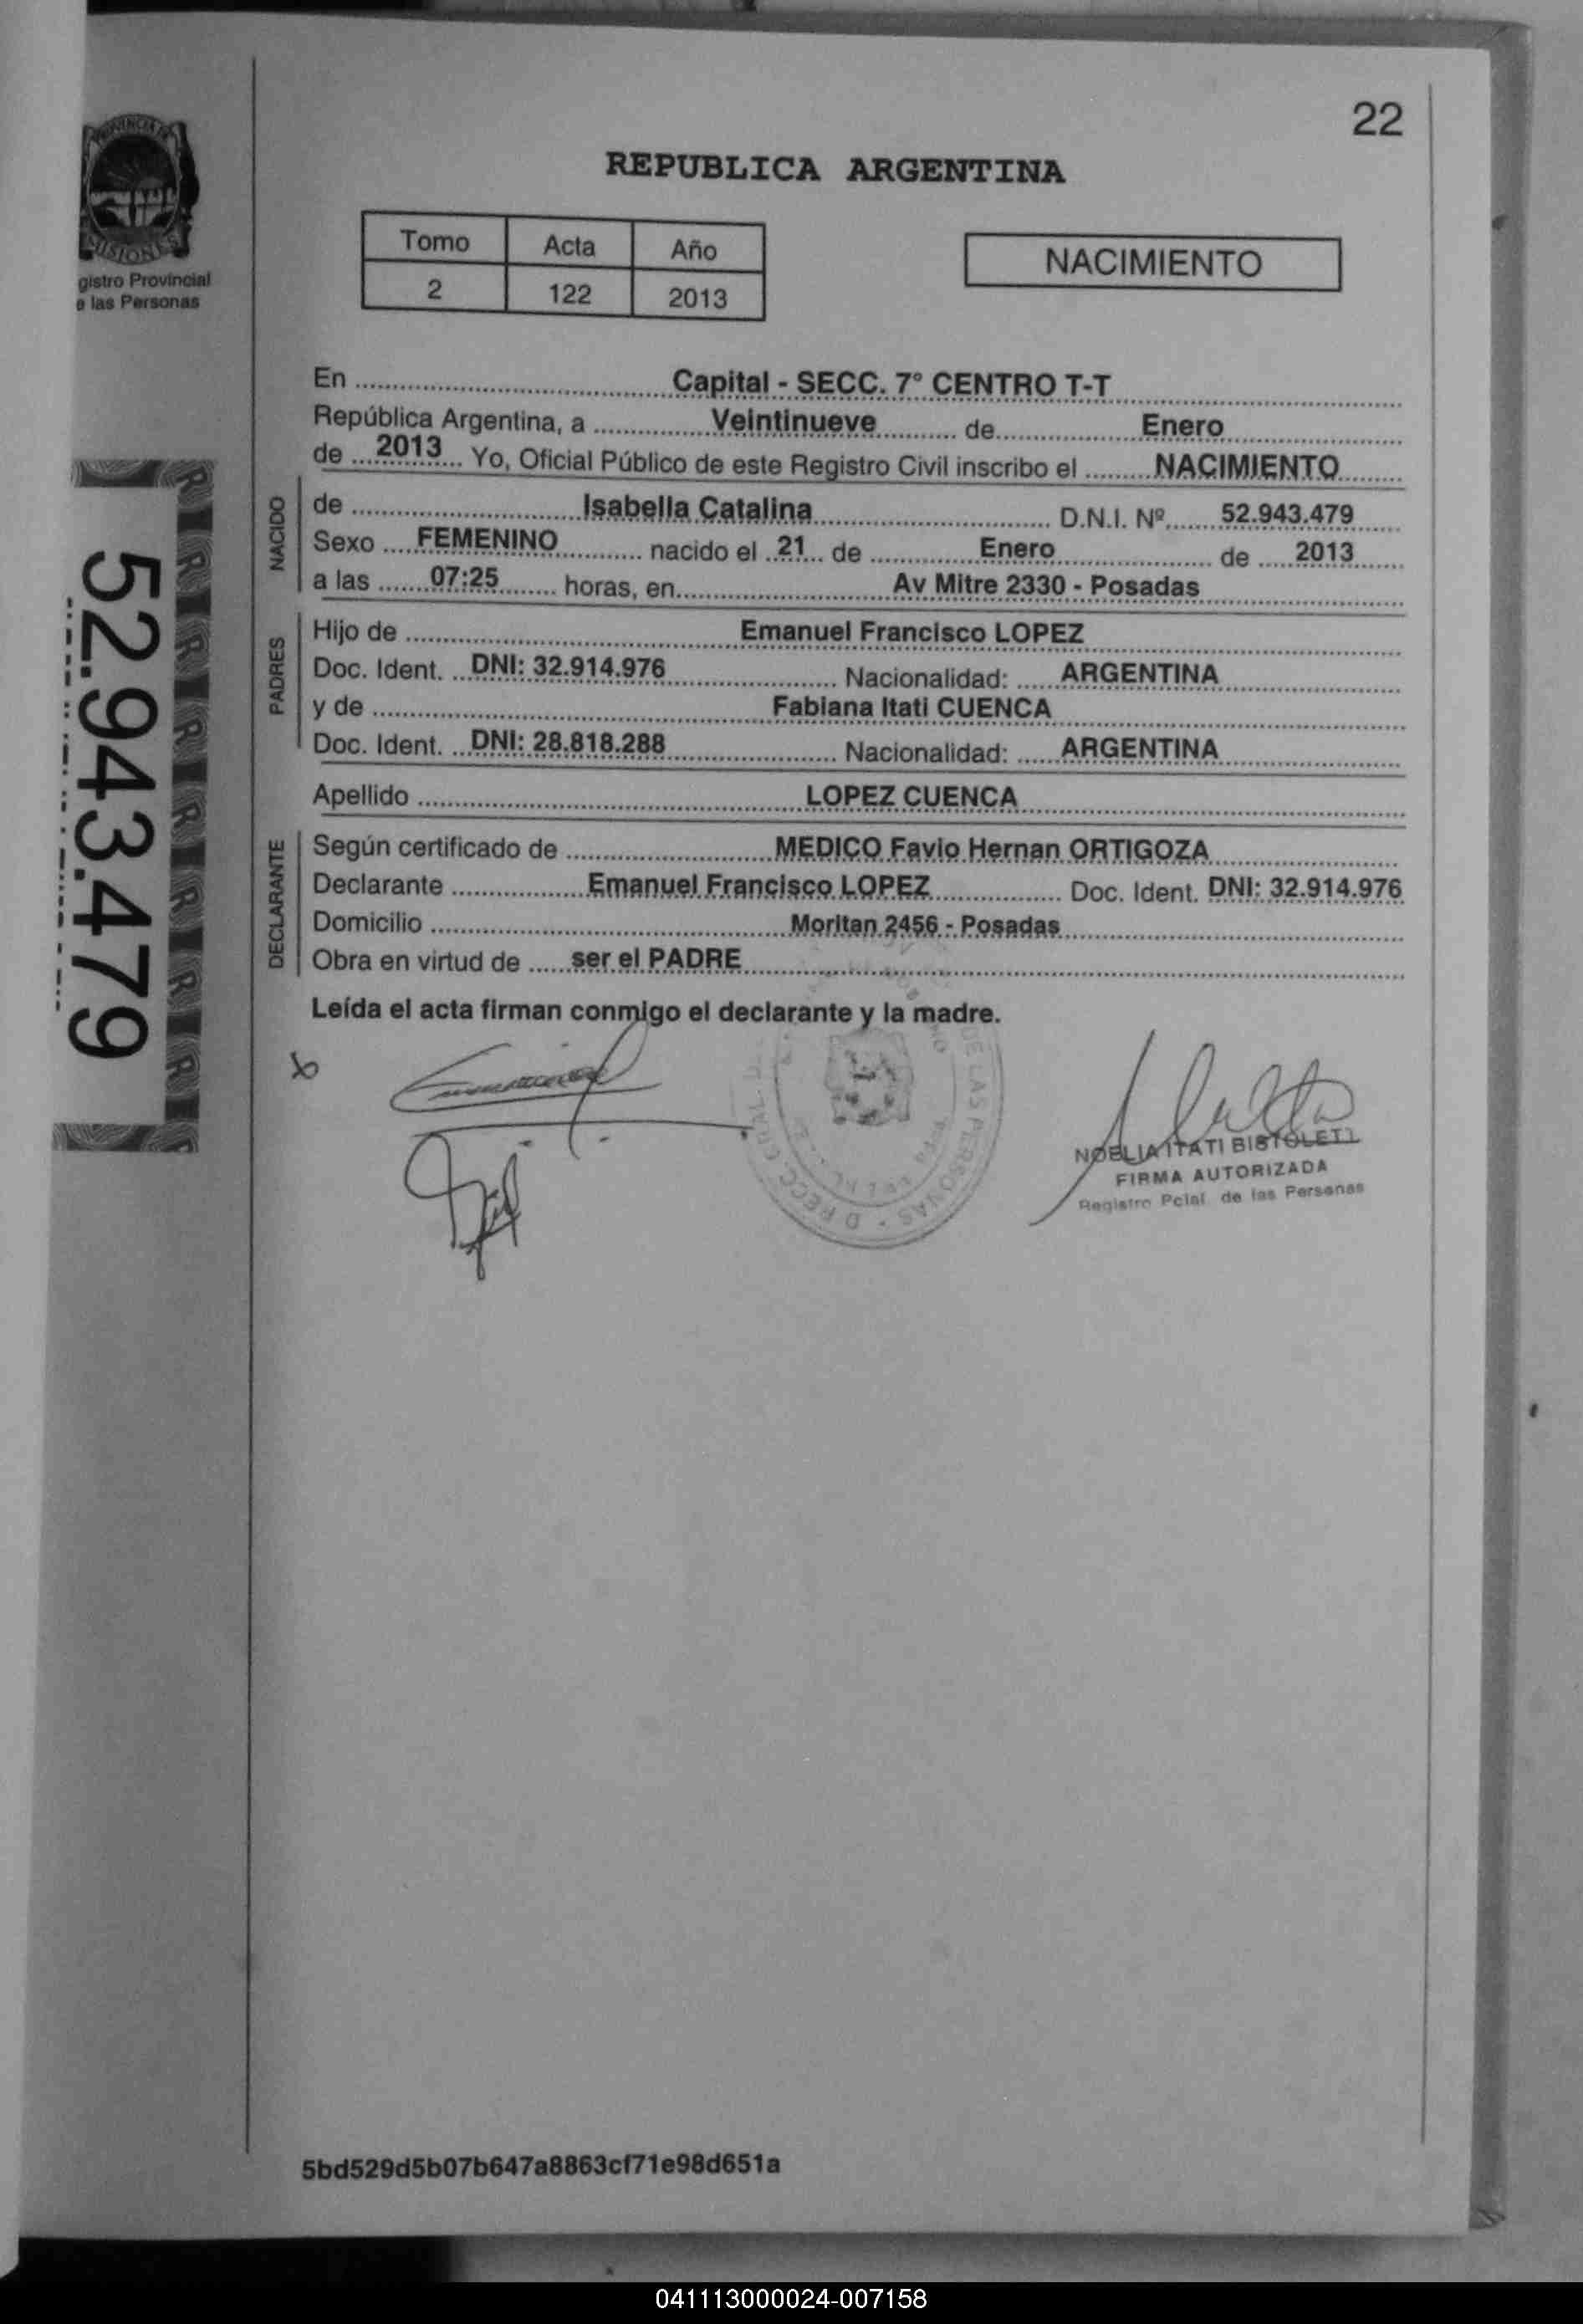 22
REPUBLICA ARGENTINA
PROVINCIA DE
MISIONES
gistro Provincial
e las Personas
Tomo Acta Año
2 122 2013
NACIMIENTO
En Capital - SECC. 7° CENTRO T-T
República Argentina, a Veintinueve de Enero
de 2013 Yo, Oficial Público de este Registro Civil inscribo el NACIMIENTO
NACIDO
de Isabella Catalina D.N.I. Nº 52.943.479
Sexo FEMENINO nacido el 21 de Enero de 2013
a las 07:25 horas, en Av Mitre 2330 - Posadas
PADRES
Hijo de Emanuel Francisco LOPEZ
Doc. Ident. DNI: 32.914.976 Nacionalidad: ARGENTINA
y de Fabiana Itati CUENCA
Doc. Ident. DNI: 28.818.288 Nacionalidad: ARGENTINA
Apellido LOPEZ CUENCA
DECLARANTE
Según certificado de MEDICO Favio Hernan ORTIGOZA
Declarante Emanuel Francisco LOPEZ Doc. Ident. DNI: 32.914.976
Domicilio Moritan 2456 - Posadas
Obra en virtud de ser el PADRE
Leída el acta firman conmigo el declarante y la madre.
52.943.479
DE LAS PERSONAS
NOELIA ITATI BISTOLETI
FIRMA AUTORIZADA
Registro Pcial. de las Personas
5bd529d5b07b647a8863cf71e98d651a
041113000024-007158